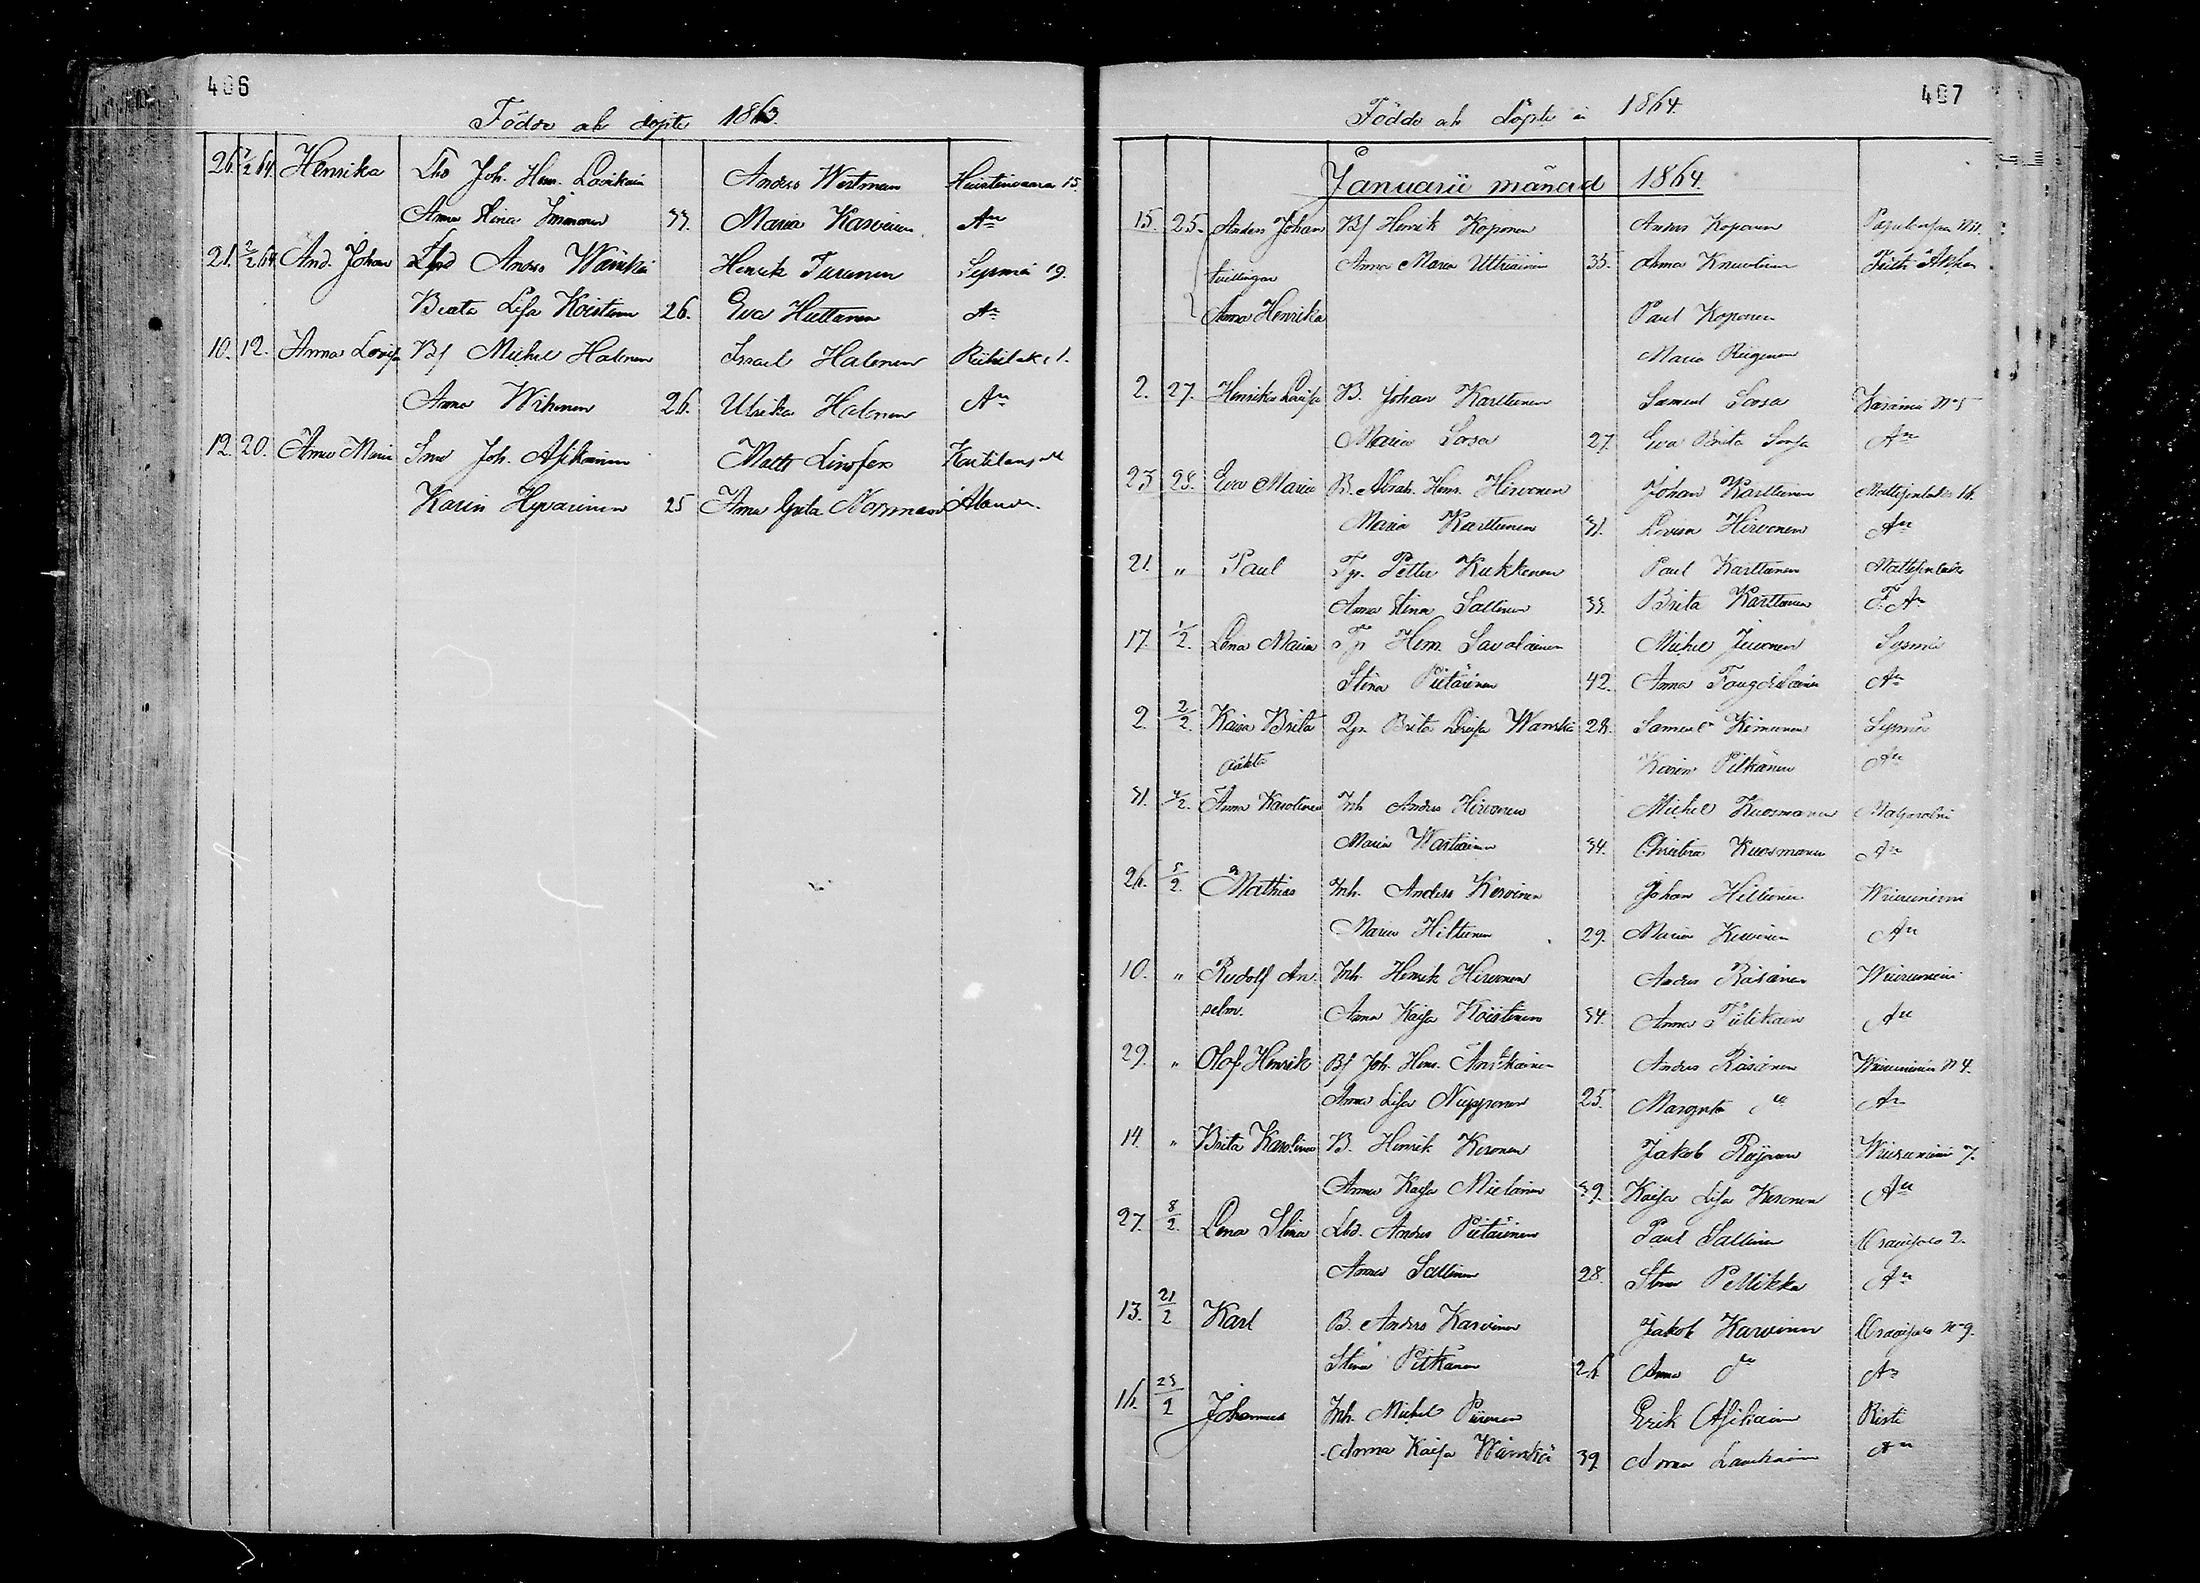 406
Födde ok döpte 1863.
26. 7/2 64. Henrika Lbd Joh. Hen. Lovikain Anders Westman Huistinvaara 15
Anna Stina Immonen 33. Maria Karvinen An
21. 2/2 64. And. Johan Lbd Anders Wänskä Henrik Turunen Sysmä 19.
Beata Lisa Koistinen 26. Eva Huttunen An
10. 12. Anna Lovisa Bf Michel Halonen Israel Halonen 1.
Anna Wihonen 26. Ulrika Halonen An
12. 20. Anna Maria Joh. Asikainen Matts
Karin Hyvärinen 25 Anna Greta Norrman
407
Födde ok döpte i 1864.
Januarii månad 1864.
15. 25. Anders Johan Bf Henrik Koponen Anders Koponen
tvillingar Anna Maria Ultriainen 35. Anna
Anna Henrika Paul Koponen
Maria
2. 27. Henrika Lovisa B. Johan Karttunen Samuel Sorsa No 5
Maria Sorsa 27. Eva Brita Sorsa An
23 28. Eva Maria B. Abrah. Henr. Hirvonen Johan Karttunen 16.
Maria Karttunen 31. Lovisa Hirvonen An
21. " Paul Tp. Petter Kukkonen Paul Karttunen
Anna Stina Sallinen 33. Brita Karttunen An
17. 1/2. Lena Maria Tp Henr. Savolainen Michel Juvonen Sysmä
Stina Pietarinen 42. Anna An
2. 2/2 Kaisa Brita Pg. Brita Lovisa Wänskä 28. Samuel Kinnunen Sysmä
oäkta Karin Pitkänen An
31. 4/2. Anna Karolina Inh Anders Hirvonen Michel Kuosmanen
Maria Wartiainen 34. Christina Kuosmanen An
26. 5/2. Mathias Inh. Anders Kervinen Johan Hiltunen
Maria Hiltunen 29. Maria Kervinen An
10. " Rudolf An- Inh. Henrik Hirvonen Anders Räsänen
selm. Anna Kaisa Koistinen 34. Anna An
29. " Olof Henrik Bf Joh. Henr. Anders Räsänen N 4.
Anna Lisa Nupponen 25. Margreta do An
14. " Brita Karolina B. Henrik Keronen Jakob 7.
Anna Kaisa Mielonen 39. Kaisa Lisa Keronen An
27. 8/2. Lena Stina Lbd. Anders Pietarinen Paul Sallinen 2.
Anna Sallinen 28. Stina Pellikka An
13. 21/2 Karl B. Anders Karvinen Jakob Karvinen No 9.
Stina Pitkänen 26 Anna do An
16. 23/2 Johannes Inh. Michel Piironen Erik Asikain Risti
Anna Kaisa Wänskä 39. Anna An